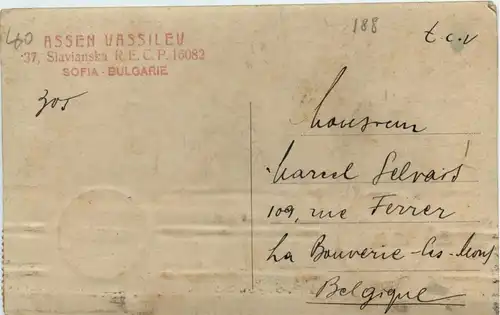 460
188
t.c.v
ASSEN VASSILEV
37, Slavianska R.E.C.P. 16082
SOFIA - BULGARIE
305
Monsieur
Marcel Gelvard
109, rue Ferrer
La Bouverie-les-Mons
Belgique